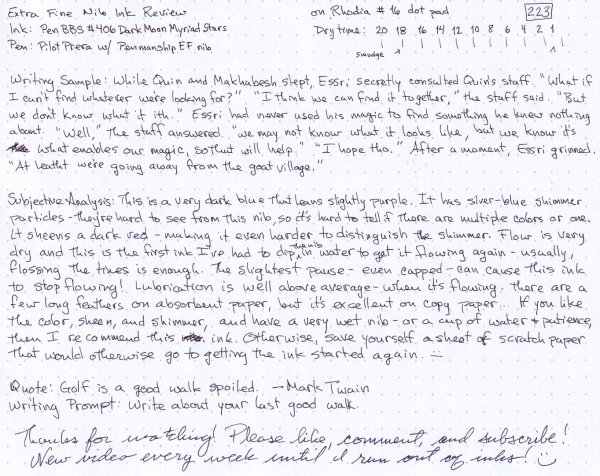 Extra Fine Nib Ink Review
on Rhodia #16 dot pad
223
Ink: Pen BBS #406 Dark Moon Myriad Stars
Dry time: 20 18 16 14 12 10 8 6 4 2 1
Pen: Pilot Prera w/ Penmanship EF nib
smudge
Writing Sample: While Quin and Makhabesh slept, Essri secretly consulted Quin's staff. "What if
I can't find whatever we're looking for?" "I think we can find it together," the staff said. "But
we don't know what it ith." Essri had never used his magic to find something he knew nothing
about. "Well," the staff answered, "we may not know what it looks like, but we know it's
what enables our magic, so that will help." "I hope tho." After a moment, Essri grinned.
"At leatht we're going away from the goat village."
Subjective Analysis: This is a very dark blue that leans slightly purple. It has silver-blue shimmer
particles - they're hard to see from this nib, so it's hard to tell if there are multiple colors or one.
It sheens a dark red - making it even harder to distinguish the shimmer. Flow is very
dry and this is the first ink I've had to dip the nib in water to get it flowing again - usually,
flossing the tines is enough. The slightest pause - even capped - can cause this ink
to stop flowing! Lubrication is well above average - when it's flowing. There are a
few long feathers on absorbent paper, but it's excellent on copy paper... If you like
the color, sheen, and shimmer, and have a very wet nib - or a cup of water + patience,
then I recommend this ink. Otherwise, save yourself a sheet of scratch paper
that would otherwise go to getting the ink started again. :-)
Quote: Golf is a good walk spoiled. - Mark Twain
Writing Prompt: Write about your last good walk.
Thanks for watching! Please like, comment, and subscribe!
New video every week until I run out of inks! :-)